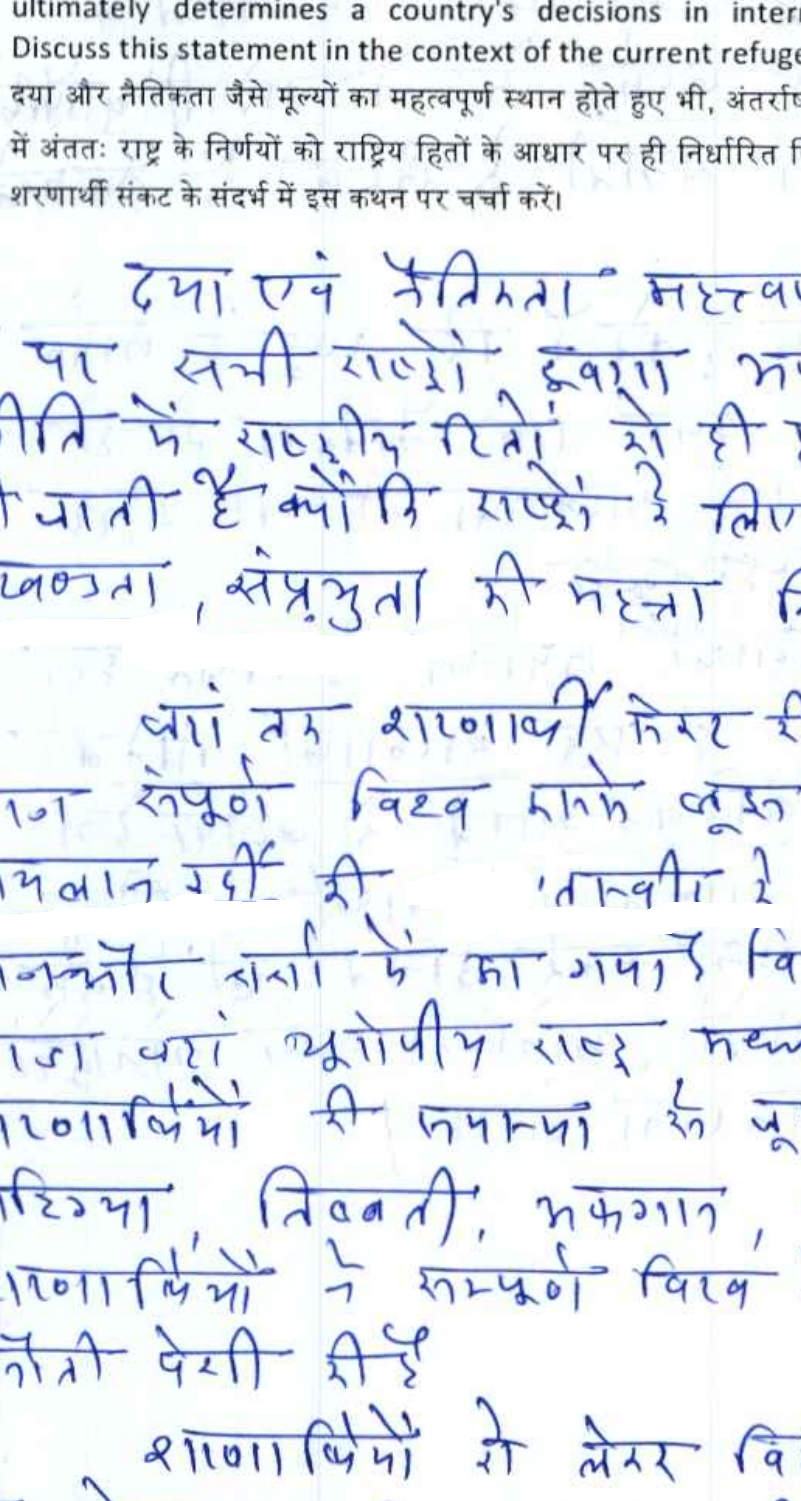 ultimately determines a country's decisions in inter
Discuss this statement in the context of the current refuge
दया और नैतिकता जैसे मूल्यों का महत्वपूर्ण स्थान होते हुए भी, अंतर्राष
में अंततः राष्ट्र के निर्णयों को राष्ट्रिय हितों के आधार पर ही निर्धारित
शरणार्थी संकट के संदर्भ में इस कथन पर चर्चा करें।
दया एवं नैतिकता महत्त्वा
पर सभी राष्ट्रों द्वारा अप
नीति में राष्ट्रीय हितों को ही
जाती है क्योंकि राष्ट्रों के लिए
खण्डता, संप्रभुता की महत्ता
जहां तक शरणार्थी की
संपूर्ण विश्व इससे जूझ
यलान कुर्दी की तस्वीर के
चर्चा में आ गया है वि
जहां यूरोपीय राष्ट्र मध्य
शरणार्थियों की समस्या से जू
रोहिंग्या, तिब्बती, अफगान,
शरणार्थियों ने सम्पूर्ण विश्व
चुनौती पेश की है
शरणार्थियों को लेकर वि